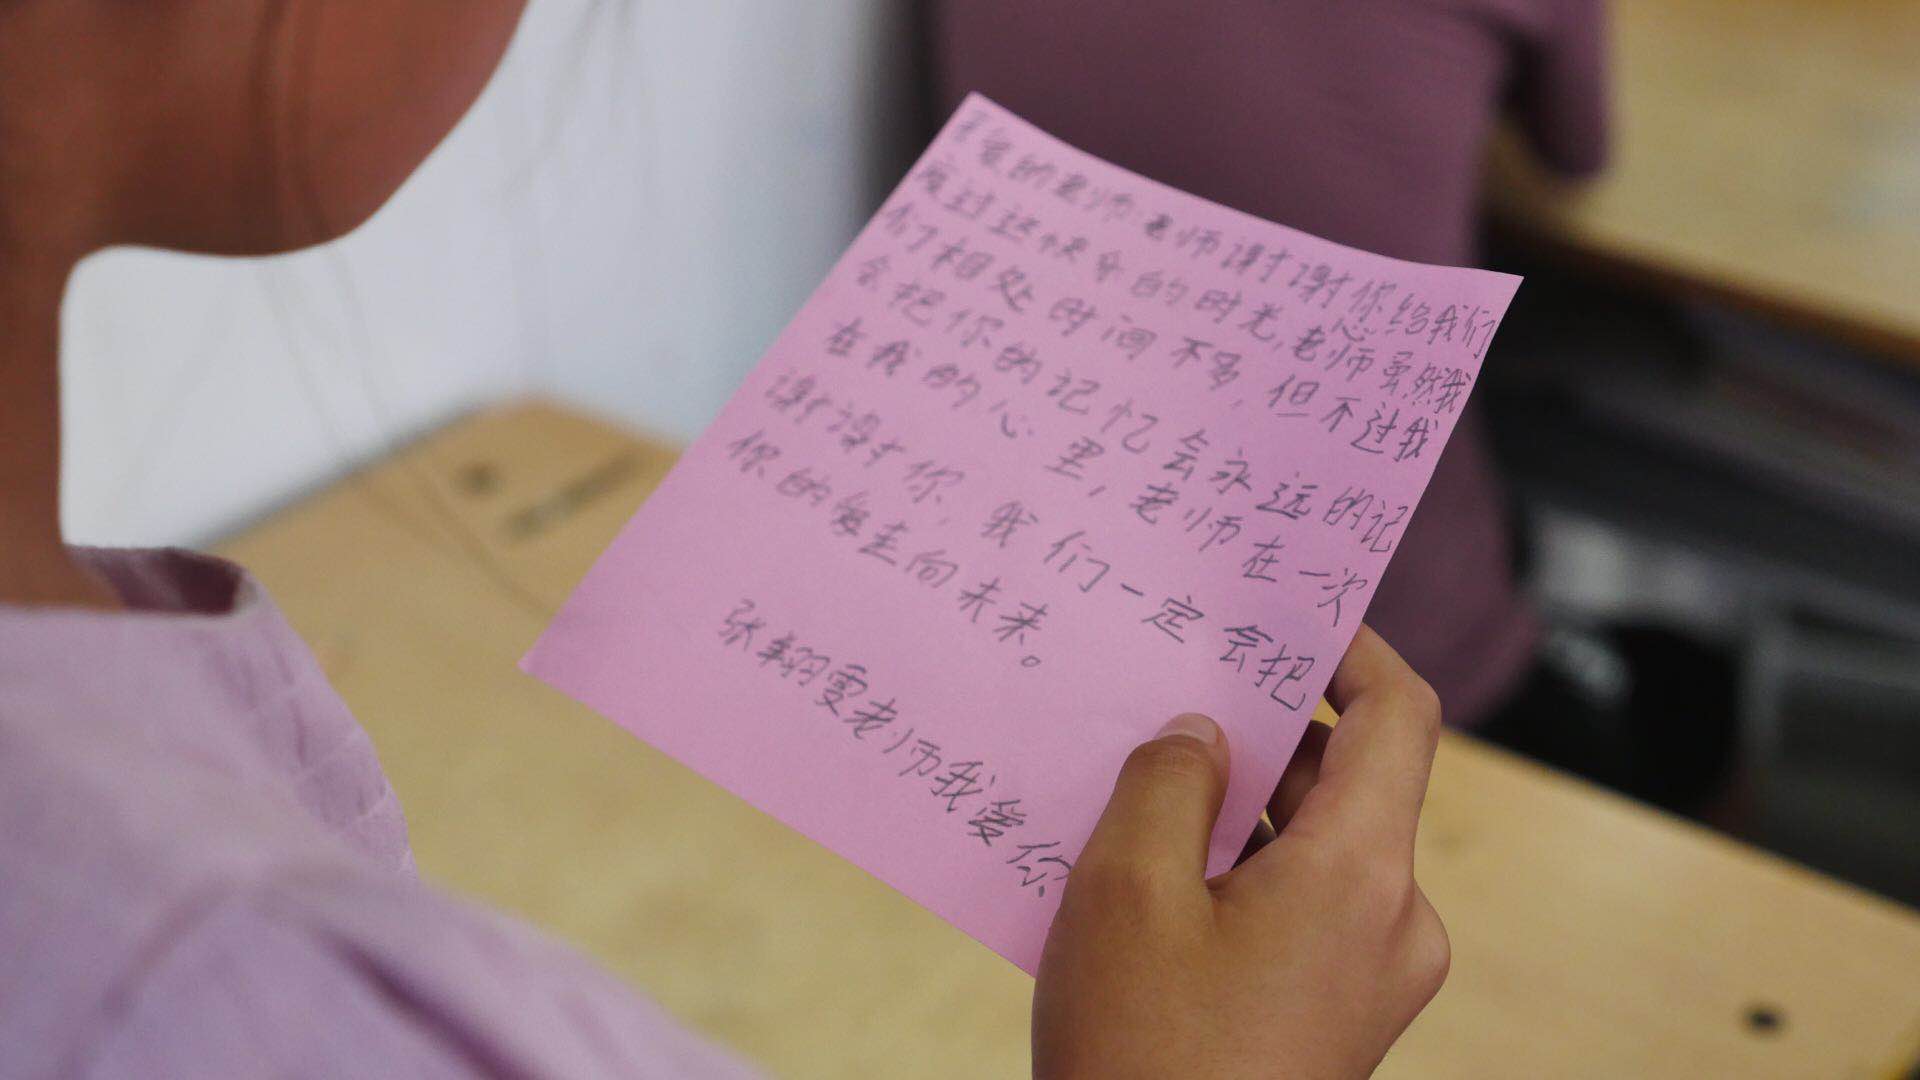 亲爱的老师:老师谢谢您给我们
度过这快乐的时光,老师虽然我
们相处时间不多,但不过我
会把你的记忆会永远的记
在我的心里,老师在一次
谢谢你,我们一定会把
你的爱走向未来。
张翱雯老师我爱你